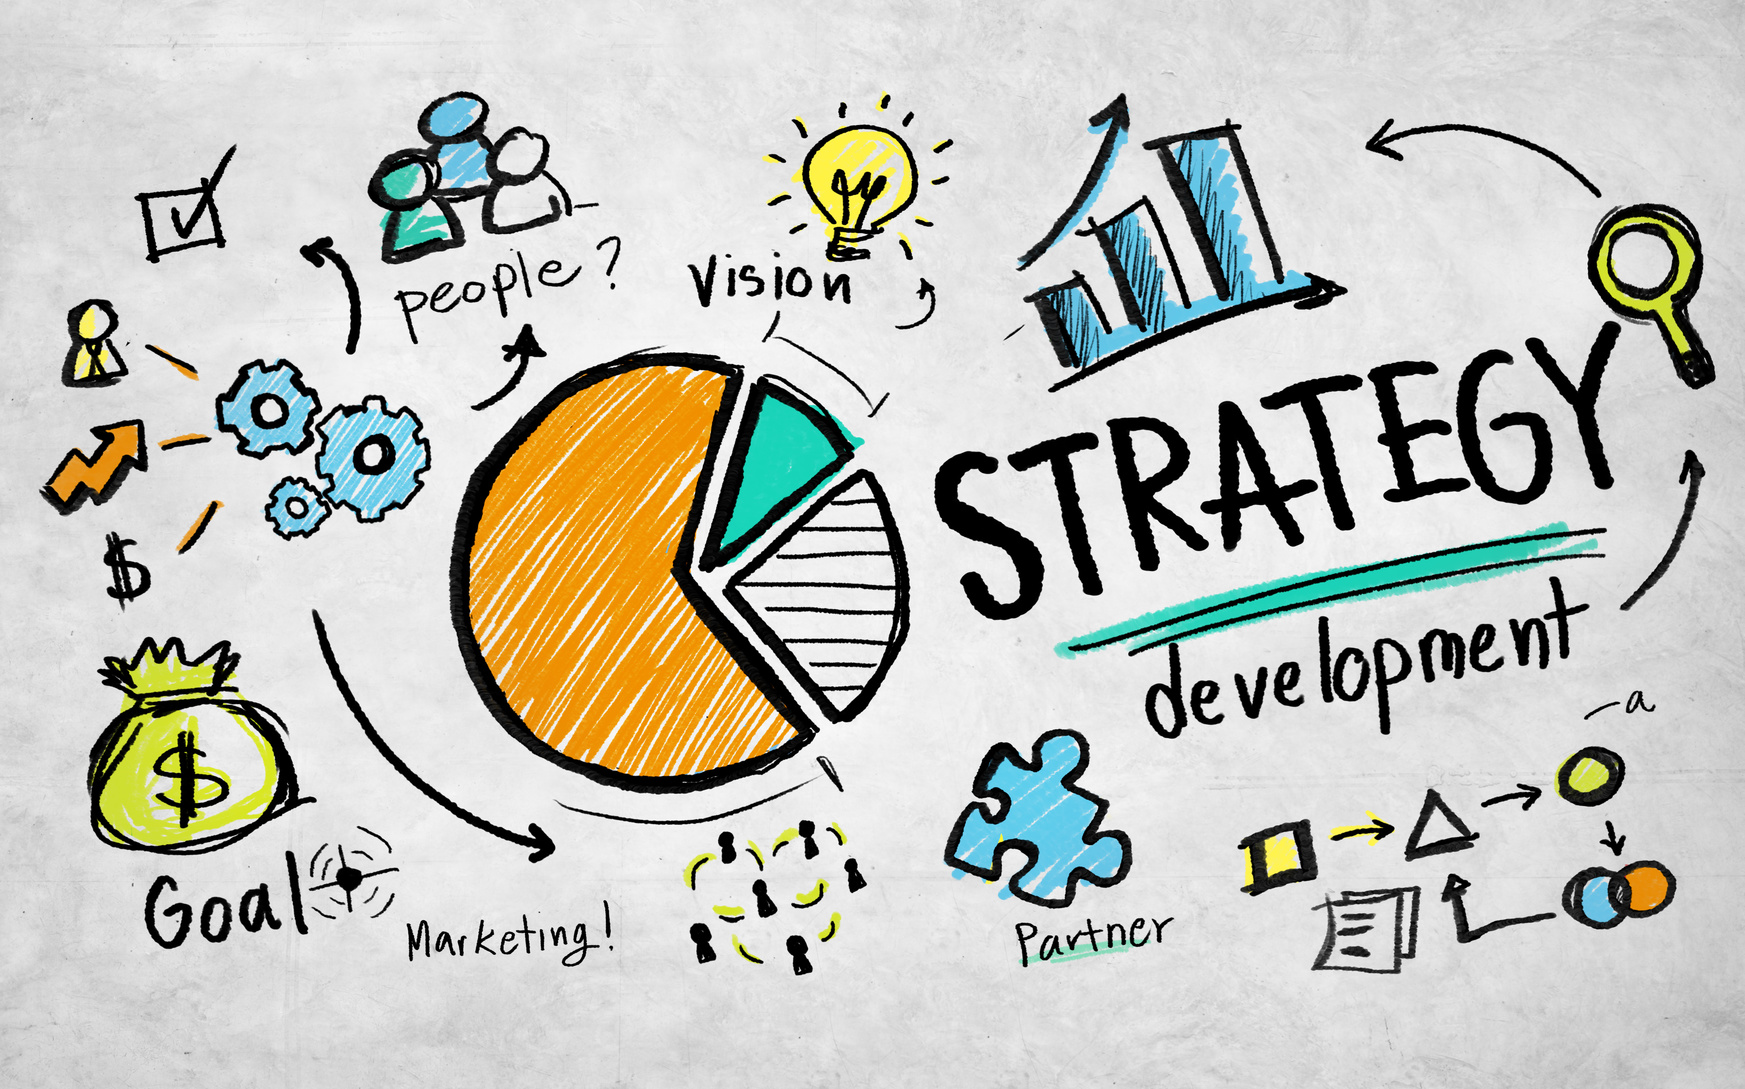 people?
Vision
STRATEGY
development
$
$
a
Goal
Marketing!
Partner